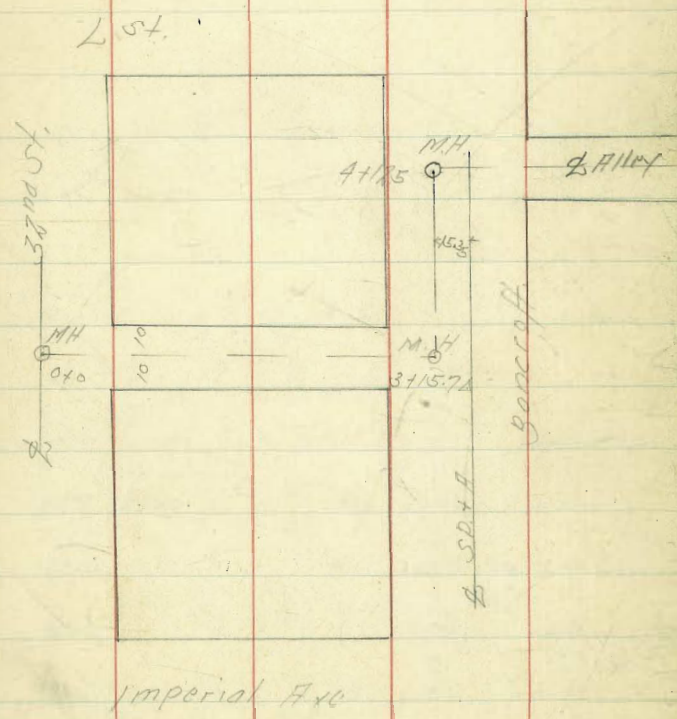 L St.
32nd St.
M.H.
4+125
℄ Alley
MH
0+0
10
10
M.H
3+15.72
Bancroft
℄
℄ SD.+A
Imperial Ave